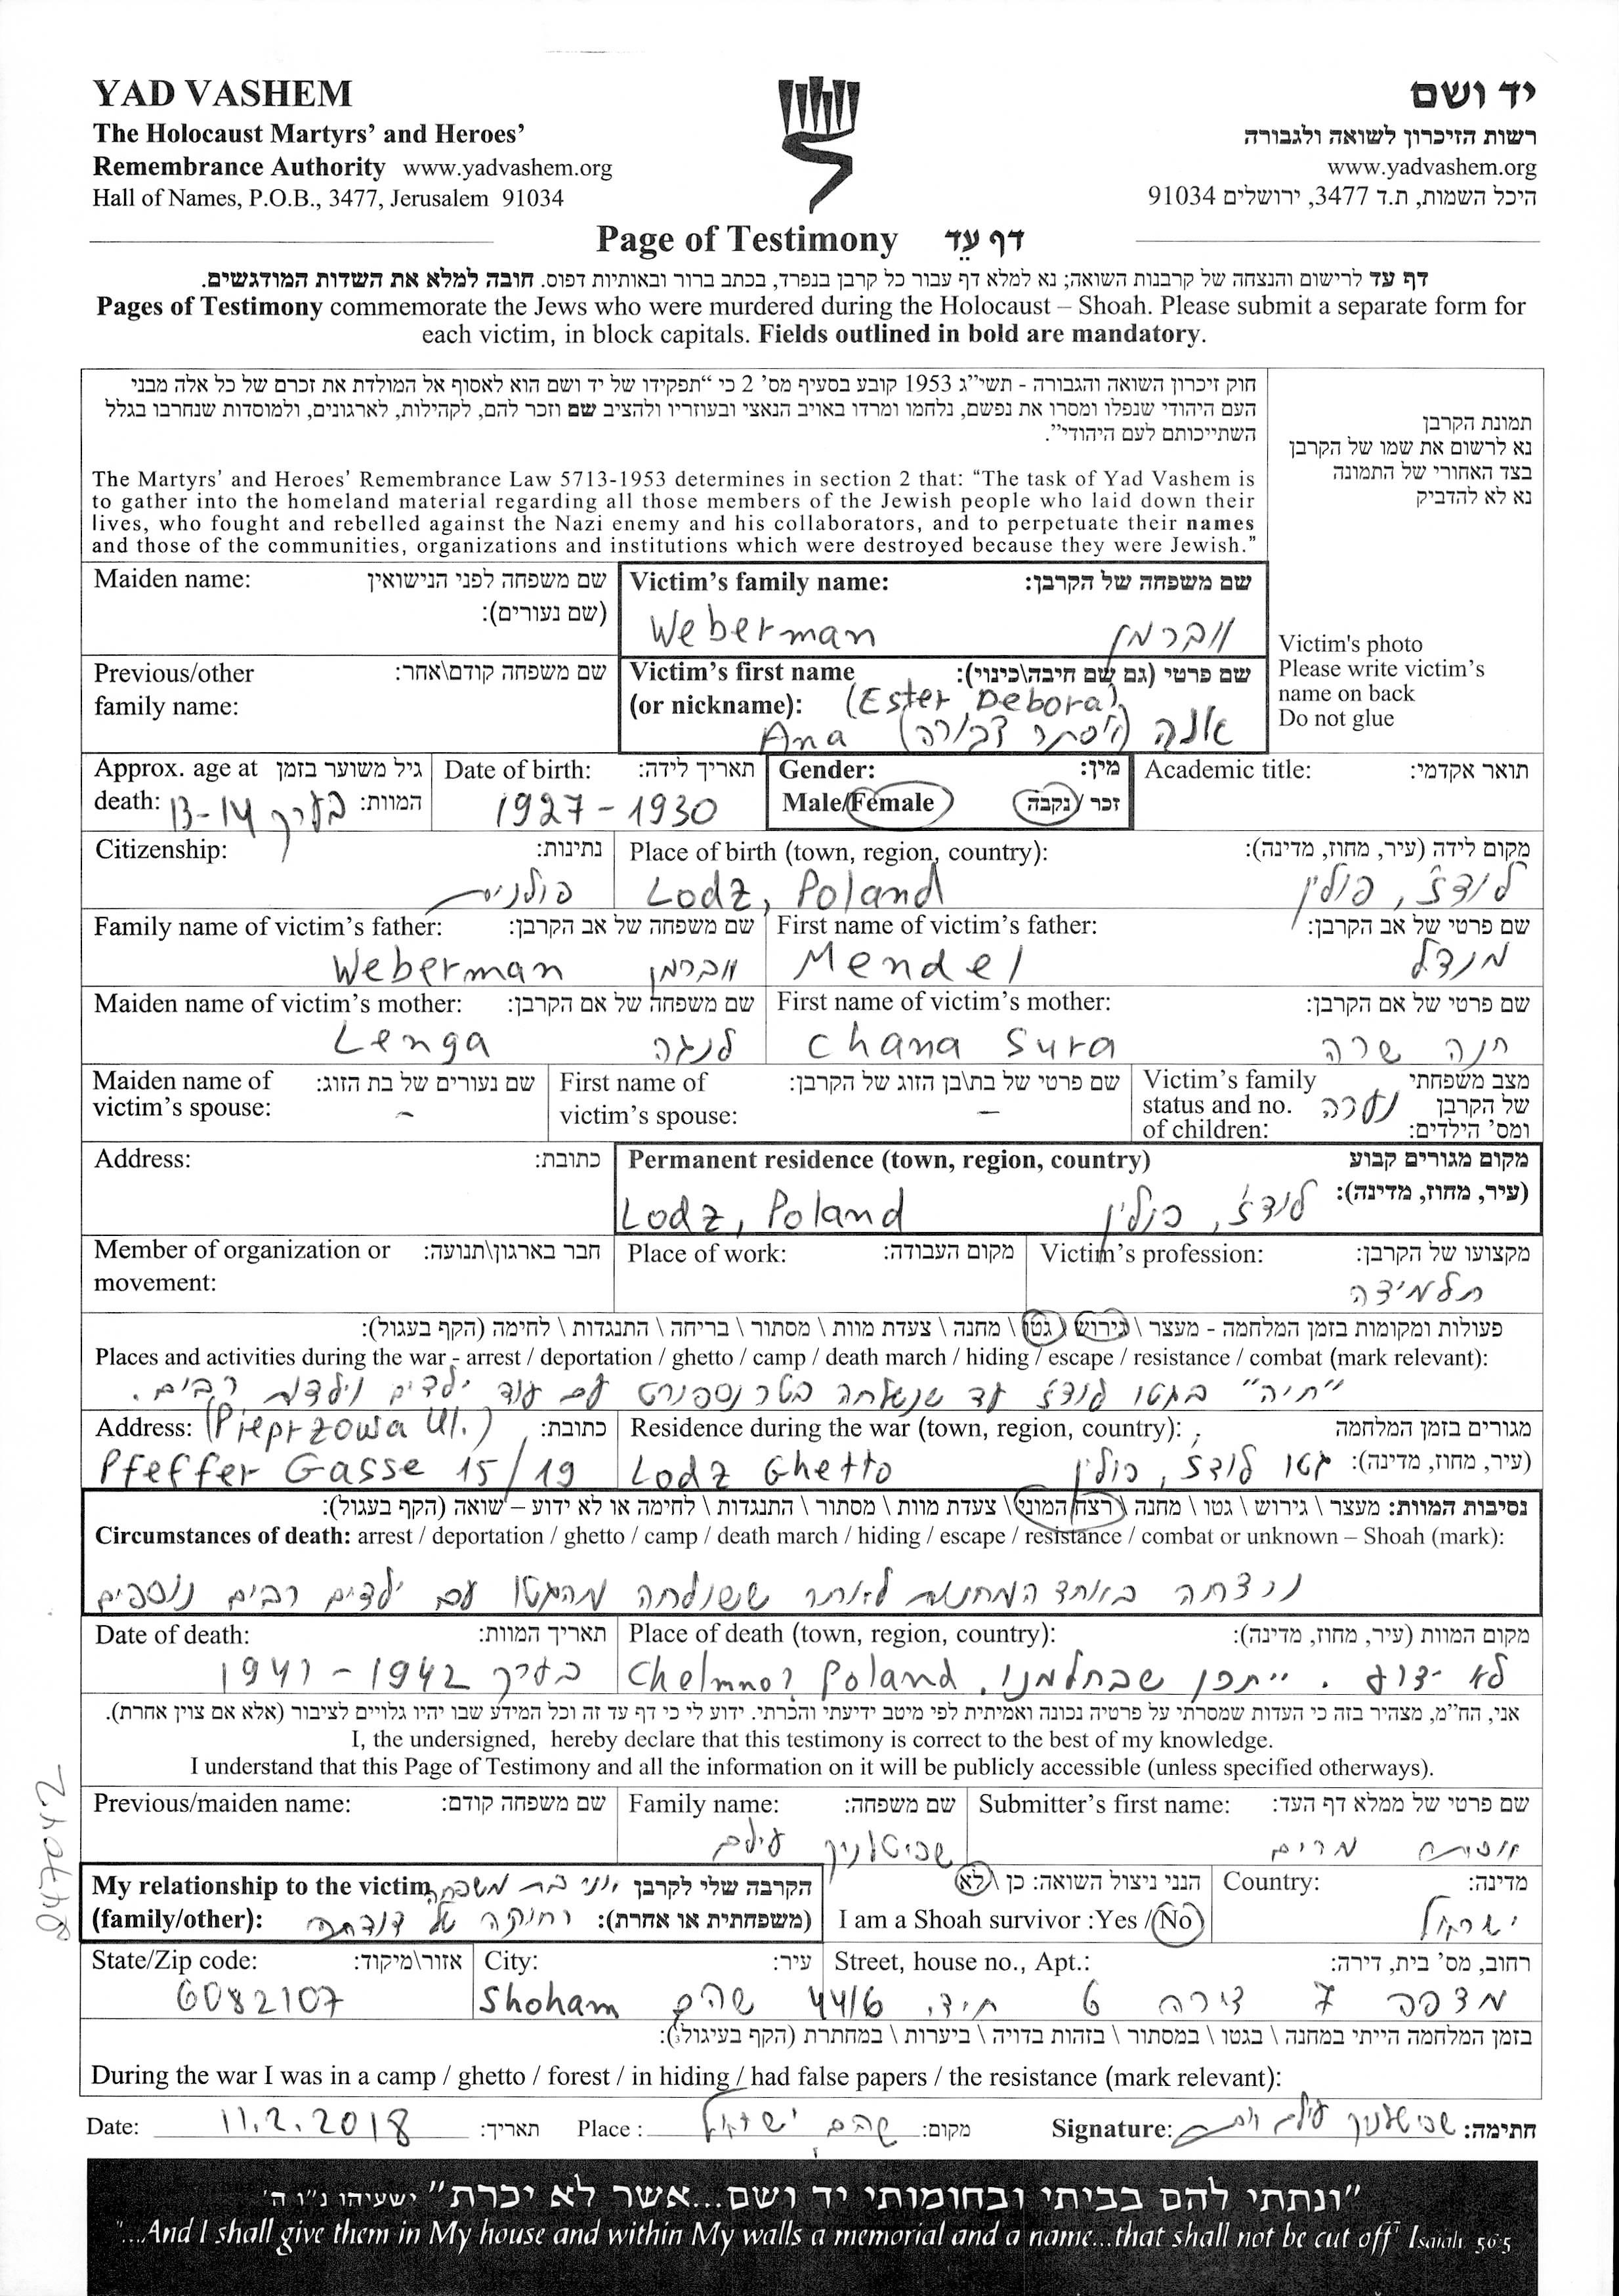 YAD VASHEM
The Holocaust Martyrs' and Heroes'
Remembrance Authority www.yadvashem.org
Hall of Names, P.O.B., 3477, Jerusalem 91034
יד ושם
רשות הזיכרון לשואה ולגבורה
www.yadvashem.org
היכל השמות, ת.ד 3477, ירושלים 91034
Page of Testimony דף עֵד
דף עד לרישום והנצחה של קרבנות השואה; נא למלא דף עבור כל קרבן בנפרד, בכתב ברור ובאותיות דפוס. חובה למלא את השדות המודגשים.
Pages of Testimony commemorate the Jews who were murdered during the Holocaust – Shoah. Please submit a separate form for
each victim, in block capitals. Fields outlined in bold are mandatory.
חוק זיכרון השואה והגבורה - תשי"ג 1953 קובע בסעיף מס' 2 כי "תפקידו של יד ושם הוא לאסוף אל המולדת את זכרם של כל אלה מבני
העם היהודי שנפלו ומסרו את נפשם, נלחמו ומרדו באויב הנאצי ובעוזריו ולהציב שם וזכר להם, לקהילות, לארגונים, ולמוסדות שנחרבו בגלל
השתייכותם לעם היהודי".
The Martyrs' and Heroes' Remembrance Law 5713-1953 determines in section 2 that: "The task of Yad Vashem is
to gather into the homeland material regarding all those members of the Jewish people who laid down their
lives, who fought and rebelled against the Nazi enemy and his collaborators, and to perpetuate their names
and those of the communities, organizations and institutions which were destroyed because they were Jewish."
תמונת הקרבן
נא לרשום את שמו של הקרבן
בצד האחורי של התמונה
נא לא להדביק
Victim's photo
Please write victim's
name on back
Do not glue
Maiden name: שם משפחה לפני הנישואין
(שם נעורים):
Victim's family name: שם משפחה של הקרבן:
Weberman ווברמן
Previous/other שם משפחה קודם\אחר:
family name:
Victim's first name שם פרטי (גם שם חיבה\כינוי):
(or nickname): (Ester Debora)
Ana אנה (אסתר דבורה)
Approx. age at גיל משוער בזמן
death: 13-14 בערך המוות:
Date of birth: תאריך לידה:
1927 - 1930
Gender: מין:
Male/Female זכר/נקבה
Academic title: תואר אקדמי:
Citizenship: נתינות:
פולנית
Place of birth (town, region, country): מקום לידה (עיר, מחוז, מדינה):
Lodz, Poland לודז', פולין
Family name of victim's father: שם משפחה של אב הקרבן:
Weberman ווברמן
First name of victim's father: שם פרטי של אב הקרבן:
Mendel מנדל
Maiden name of victim's mother: שם משפחה של אם הקרבן:
Lenga לנגה
First name of victim's mother: שם פרטי של אם הקרבן:
Chana Sura חנה שרה
Maiden name of שם נעורים של בת הזוג:
victim's spouse: –
First name of שם פרטי של בת\בן הזוג של הקרבן:
victim's spouse: –
Victim's family מצב משפחתי
status and no. נערה של הקרבן
of children: ומס' הילדים:
Address: כתובת:
Permanent residence (town, region, country) מקום מגורים קבוע
(עיר, מחוז, מדינה):
Lodz, Poland לודז', פולין
Member of organization or חבר בארגון\תנועה:
movement:
Place of work: מקום העבודה:
Victim's profession: מקצועו של הקרבן:
תלמידה
פעולות ומקומות בזמן המלחמה - מעצר \ גירוש \ גטו \ מחנה \ צעדת מוות \ מסתור \ בריחה \ התנגדות \ לחימה (הקף בעגול):
Places and activities during the war - arrest / deportation / ghetto / camp / death march / hiding / escape / resistance / combat (mark relevant):
"חיה" בגטו לודז' עד שנשלחה בטרנספורט עם עוד ילדים וילדות רבים.
Address: (Pieprzowa Ul.) כתובת:
Pfeffer Gasse 15/19
Residence during the war (town, region, country): מגורים בזמן המלחמה
(עיר, מחוז, מדינה):
Lodz Ghetto גטו לודז', פולין
נסיבות המוות: מעצר \ גירוש \ גטו \ מחנה \ רצח המוני \ צעדת מוות \ מסתור \ התנגדות \ לחימה או לא ידוע – שואה (הקף בעגול):
Circumstances of death: arrest / deportation / ghetto / camp / death march / hiding / escape / resistance / combat or unknown – Shoah (mark):
נרצחה באחד המחנות לאחר ששולחה מהגטו עם ילדים רבים נוספים
Date of death: תאריך המוות:
בערך 1941 - 1942
Place of death (town, region, country): מקום המוות (עיר, מחוז, מדינה):
לא ידוע. ייתכן שבחלמנו. Chelmno? Poland
אני, הח"מ, מצהיר בזה כי העדות שמסרתי על פרטיה נכונה ואמיתית לפי מיטב ידיעתי והכרתי. ידוע לי כי דף עד זה וכל המידע שבו יהיו גלויים לציבור (אלא אם צוין אחרת).
I, the undersigned, hereby declare that this testimony is correct to the best of my knowledge.
I understand that this Page of Testimony and all the information on it will be publicly accessible (unless specified otherways).
Previous/maiden name: שם משפחה קודם:
Family name: שם משפחה:
עילם
Submitter's first name: שם פרטי של ממלא דף העד:
מרים
My relationship to the victim הקרבה שלי לקרבן אני בת משפחה
(family/other): (משפחתית או אחרת): רחוקה של דודתה
הנני ניצול השואה: כן \ לא
I am a Shoah survivor :Yes / No
Country: מדינה:
ישראל
State/Zip code: אזור\מיקוד:
6082107
City: עיר:
Shoham שהם
Street, house no., Apt.: רחוב, מס' בית, דירה:
מצפה 7 דירה 6 ת.ד. 44/6
בזמן המלחמה הייתי במחנה \ בגטו \ במסתור \ בזהות בדויה \ ביערות \ במחתרת (הקף בעיגול):
During the war I was in a camp / ghetto / forest / in hiding / had false papers / the resistance (mark relevant):
Date: 11.2.2018 תאריך:
Place : שהם ישראל מקום:
Signature: חתימה:
"ונתתי להם בביתי ובחומותי יד ושם...אשר לא יכרת" ישעיהו נ"ו ה'
"...And I shall give them in My house and within My walls a memorial and a name...that shall not be cut off" Isaiah 56:5